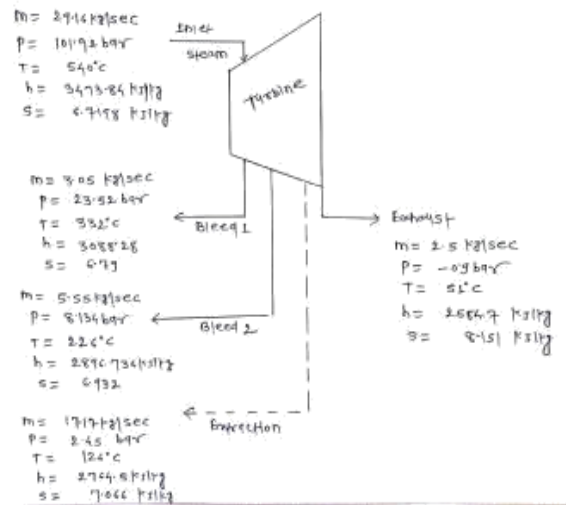 m= 29.16 kg/sec
P= 101.92 bar
T= 540°c
h= 3473.84 KJ/kg
S= 6.7198 KJ/kg
Inlet
steam
Turbine
m= 3.05 kg/sec
P= 23.52 bar
T= 332°c
h= 3088.28
S= 6.79
Bleed 1
Exhaust
m= 2.5 kg/sec
P= -0.9 bar
T= 51°c
h= 2584.7 KJ/kg
S= 8.151 KJ/kg
m= 5.55 kg/sec
P= 8.134 bar
T= 226°c
h= 2896.736 KJ/kg
S= 6.932
Bleed 2
m= 17.17 kg/sec
P= 2.45 bar
T= 126°c
h= 2764.5 KJ/kg
S= 7.066 KJ/kg
Extraction